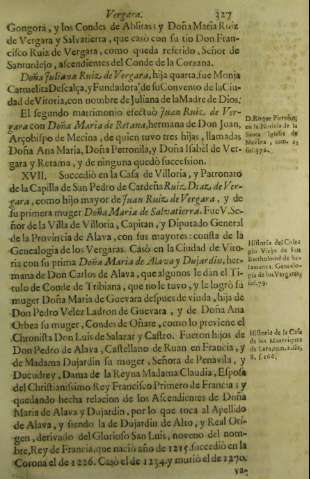 Vergara. 327
Gongora, y los Condes de Ablitas; y Doña Maria Ruiz
de Vergara y Salvatierra, que casò con su tio Don Fran-
cisco Ruiz de Vergara, como queda referido, Señor de
Santurdejo, ascendientes del Conde de la Corzana.
Doña Juliana Ruiz de Vergara, hija quarta, fue Monja
Carmelita Descalça, y Fundadora de su Convento de la Ciu-
dad de Vitoria, con nombre de Juliana de la Madre de Dios.
El segundo matrimonio efectuò Juan Ruiz de Ver-
gara con Doña Maria de Retana, hermana de Don Juan,
Arçobispo de Mecina, de quien tuvo tres hijas, llamadas
Doña Ana Maria, Doña Petronila, y Doña Isabel de Ver-
gara y Retana, y de ninguna quedò succession.
XVII. Succediò en la Casa de Villoria, y Patronato
de la Capilla de San Pedro de Cardeña Ruiz Diaz de Ver-
gara, como hijo mayor de Juan Ruiz de Vergara, y de
su primera muger Doña Maria de Salvatierra. Fue Se-
ñor de la Villa de Villoria, Capitan, y Diputado General
de la Provincia de Alava, con sus mayores: consta de la
Genealogia de los Vergaras. Casò en la Ciudad de Vito-
ria con su prima Doña Maria de Alava y Dujardin, her-
mana de Don Carlos de Alava, que algunos le dan el Ti-
tulo de Conde de Tribiana, que no le tuvo, y le logrò su
muger Doña Maria de Guevara despues de viuda, hija de
Don Pedro Velez Ladron de Guevara, y de Doña Ana
Orbea su muger, Condes de Oñate, como lo previene el
Chronista Don Luis de Salazar y Castro. Fueron hijos de
Don Pedro de Alava, Castellano de Ruan en Francia, y
de Madama Dujardin su muger, Señora de Penavila, y
Ducudrey, Dama de la Reyna Madama Claudia, Esposa
del Christianissimo Rey Francisco Primero de Francia: y
quedando hecha relacion de los Ascendientes de Doña
Maria de Alava y Dujardin, por lo que toca al Apellido
de Alava, y siendo la de Dujardin de Alto, y Real Ori-
gen, derivado del Glorioso San Luis, noveno del nom-
bre, Rey de Francia, que naciò año de 1215. succediò en la
Corona el de 1226. Casò el de 1234. y muriò el de 1270.
D. Roque Pirro,
en la Noticia de la
Santa Iglesia de
Mecina
Historia del Cole-
gio Viejo de San
Bartholomè de Sa-
lamanca. Genealo-
gia de los Vergaras,
fol. 79.
Historia de la Casa
de los Manriques
de Lara